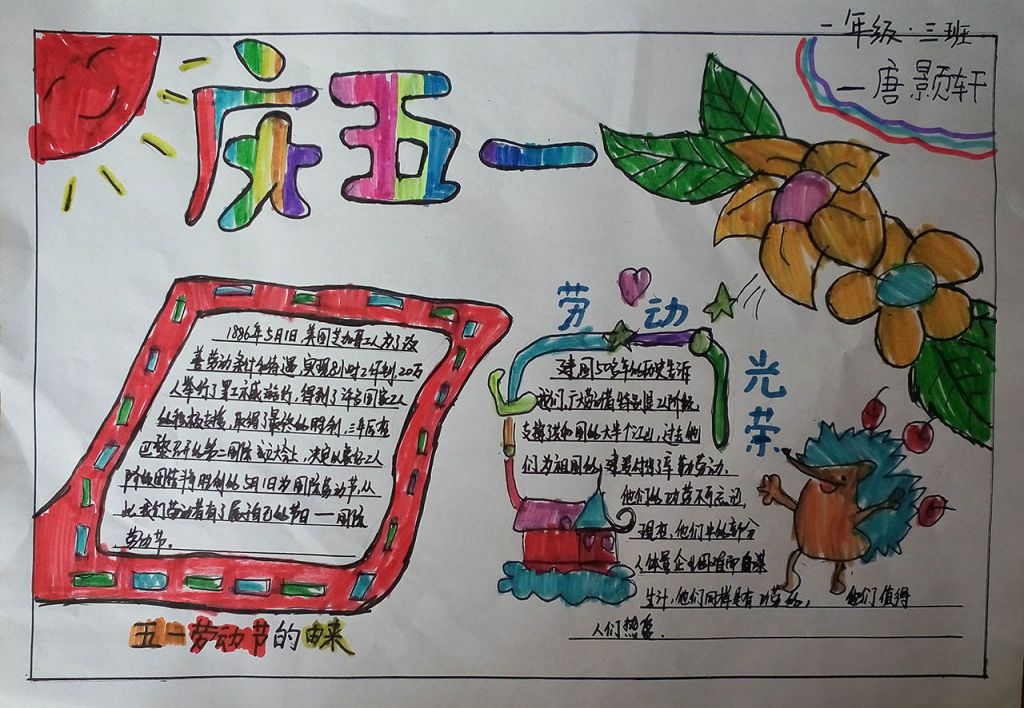 一年级·三班
一唐景轩
庆五一
1886年5月1日,美国芝加哥工人为了改
善劳动条件和待遇,实现8小时工作制,20万
人举行了罢工示威游行,得到了许多国家工人
的积极支援,取得了最终的胜利,三年后在
巴黎召开的第二国际成立大会上,决定以象征工人
阶级团结 胜利的5月1日为国际劳动节,从
此,我们劳动者有了属于自己的节日——国际
劳动节。
五一劳动节的由来
劳动
光荣
建国50多年的历史告诉
我们,广大劳动者特别是工人阶级,
支撑了共和国的大半个江山,过去他
们为祖国的建设付出了辛勤劳动,
他们的功劳不可忘记,
现在,他们中的部分
人体量企业困难而自谋
生计,他们同样是有功劳的, 他们值得
人们热爱.